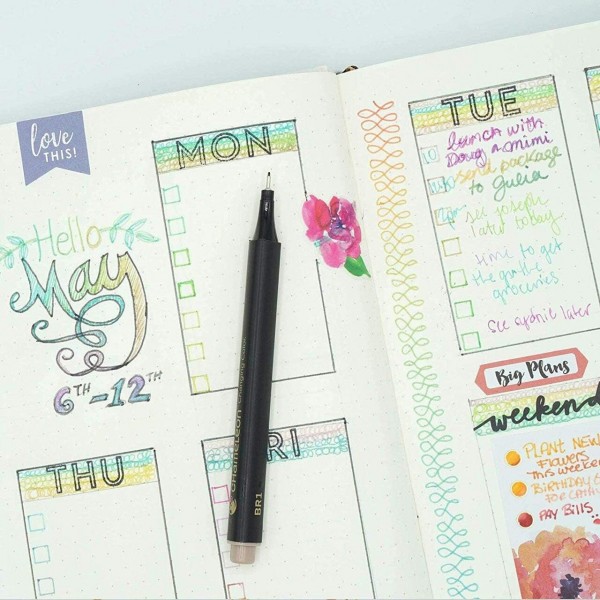 love
THIS!
Hello
May
6TH-12TH
MON
THU
FRI
Chameleon
BR1
TUE
lunch with
Doug & mimi
send package
to Julia
see joseph
later today
time to get
the
groceries
see sydnie later
Big Plans
weekend
PLANT NEW
FLOWERS
THIS WEEKEND
BIRTHDAY
FOR
PAY BILLS